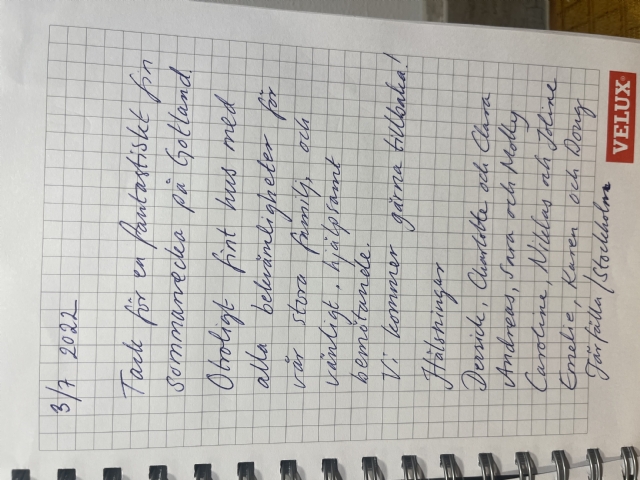 3/7 2022
Tack för en fantastiskt fin
sommarvecka på Gotland.
Otroligt fint hus med
alla bekvämligheter för
vår stora familj, och
vänligt, hjälpsamt
bemötande.
Vi kommer gärna tillbaka!
Hälsningar
Derrick, Charlotte och Clara
Andreas, Sara och Molly
Caroline, Nicklas och Joline
Emelie, Karen och Doug
Järfälla/Stockholm
VELUX